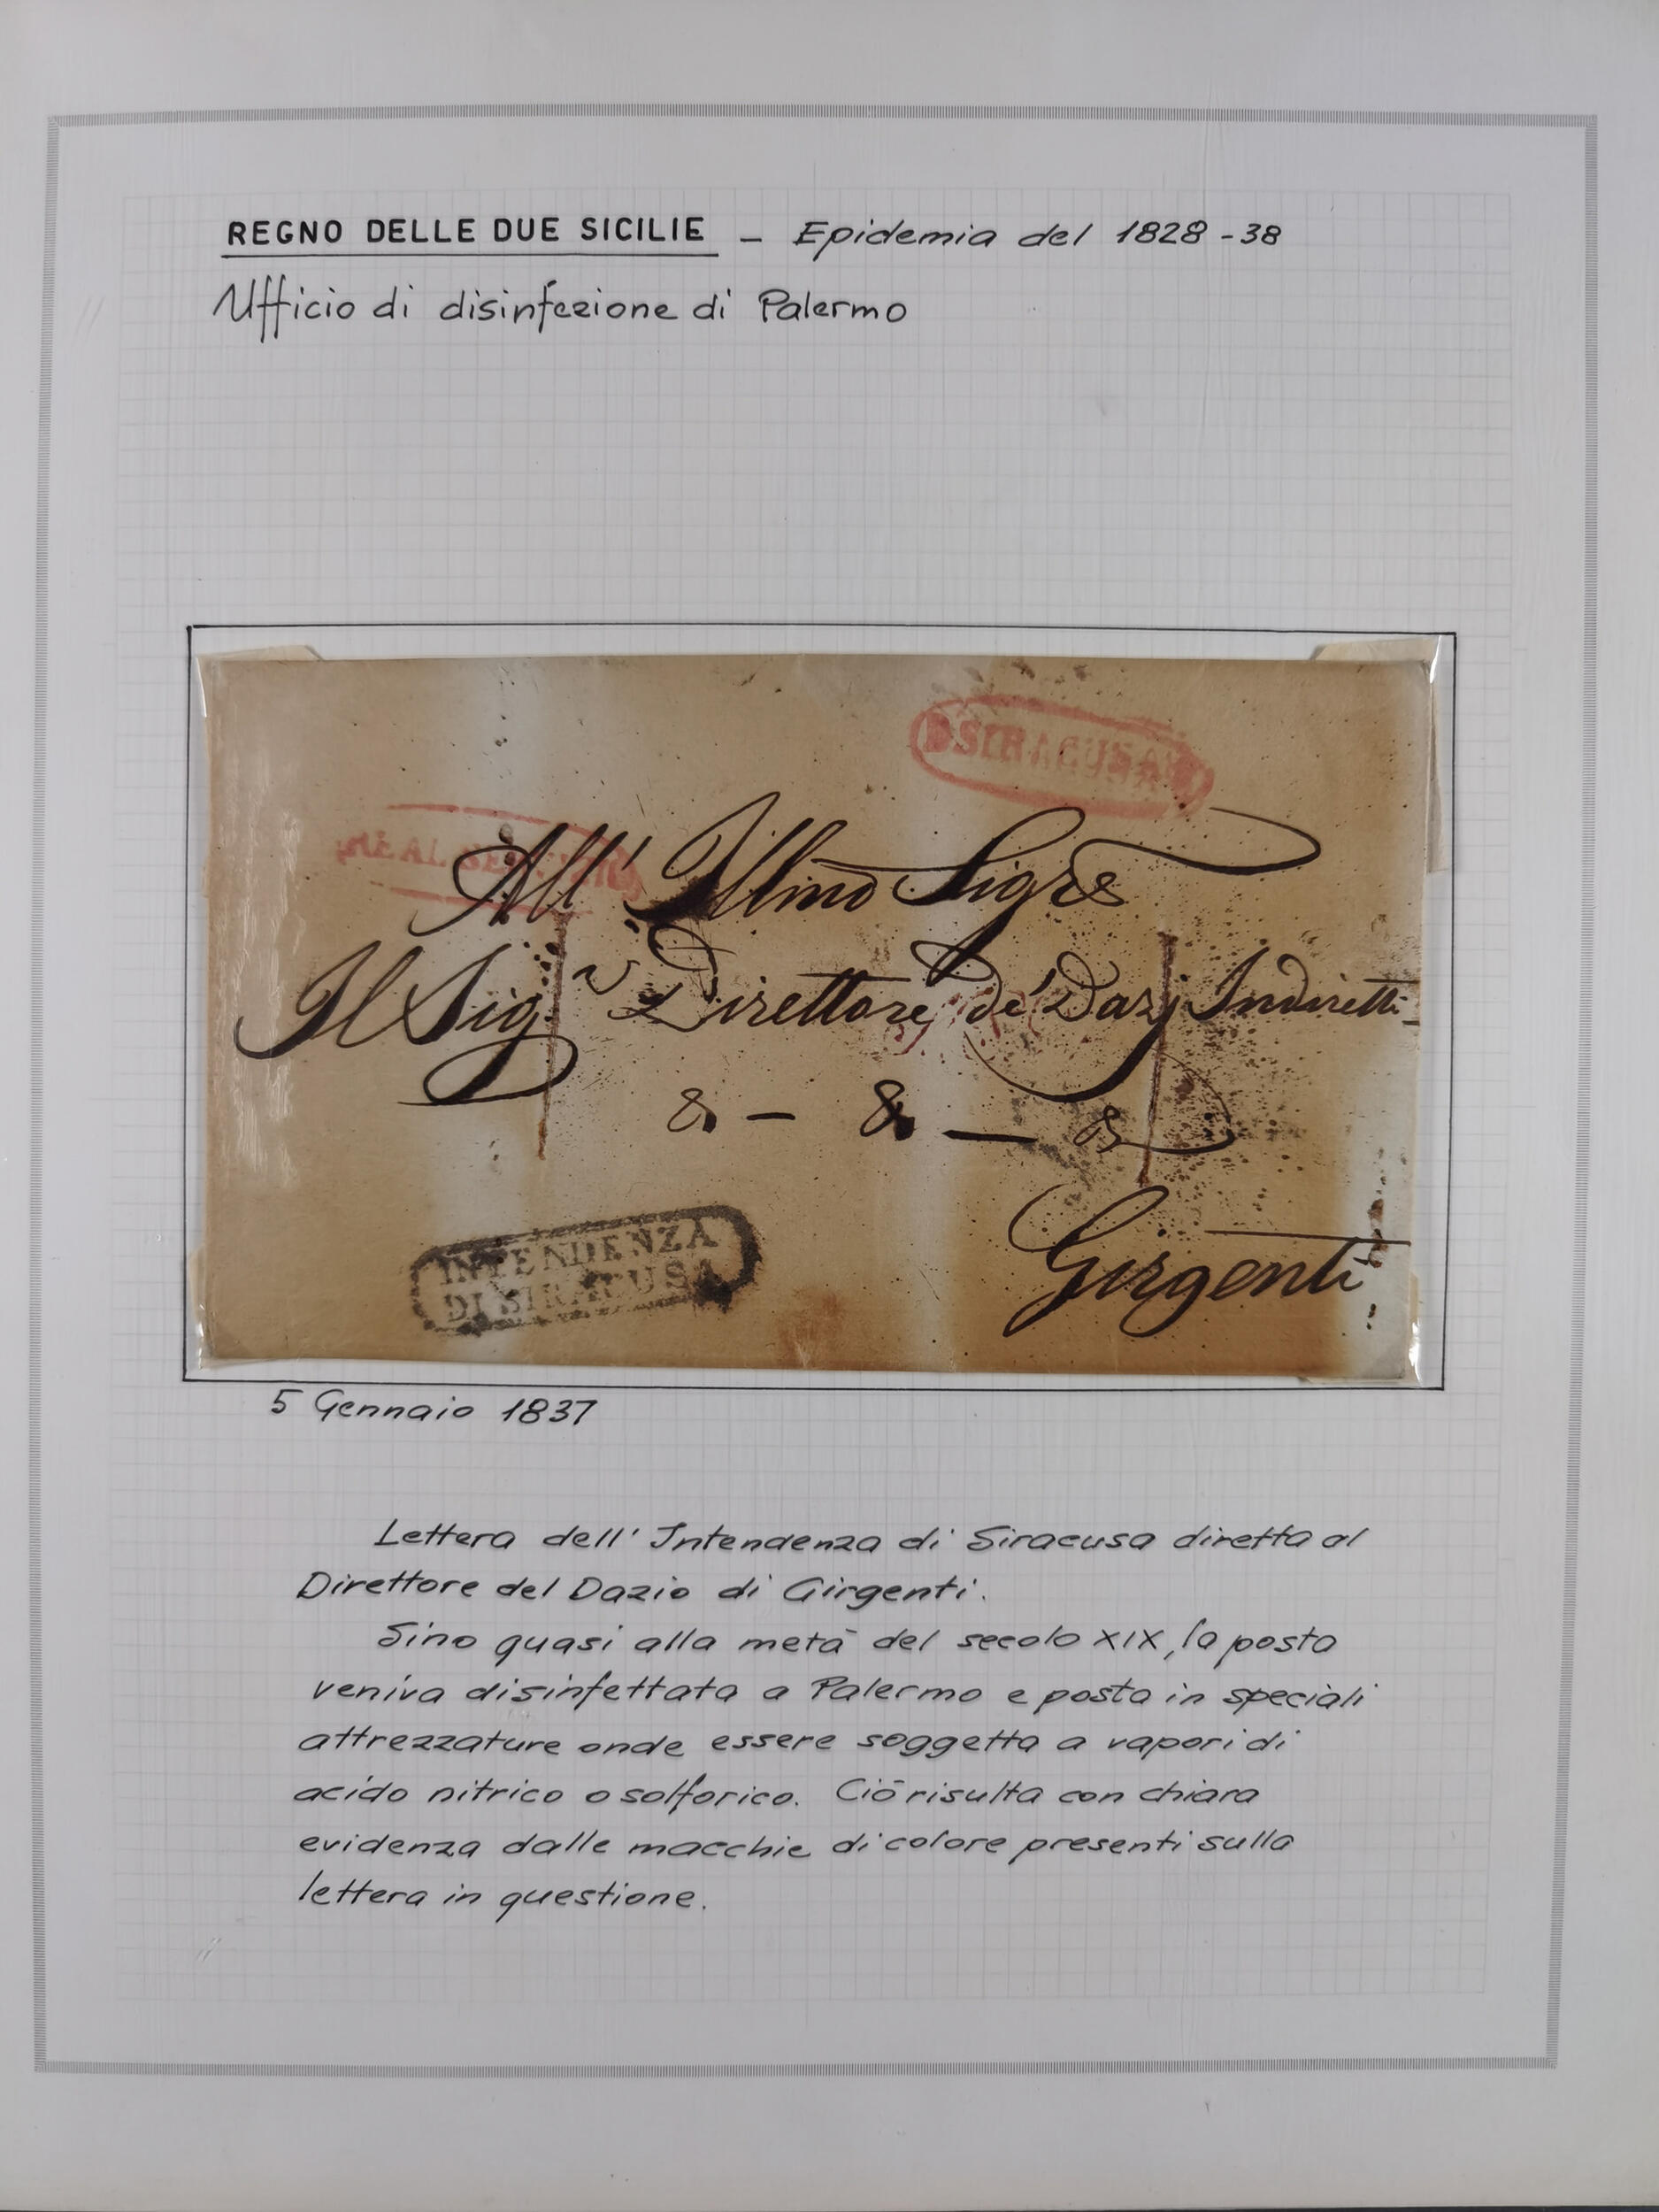 REGNO DELLE DUE SICILIE - Epidemia del 1828-38
Ufficio di disinfezione di Palermo
SIRACUSA
REAL SERVIZIO
All' Illmo Sigre
Il Sigr Direttore de' Dazj Indiretti
& - & - &
Girgenti
INTENDENZA
DI SIRACUSA
5 Gennaio 1837
Lettera dell'Intendenza di Siracusa diretta al
Direttore del Dazio di Girgenti.
Sino quasi alla metà del secolo XIX, la posta
veniva disinfettata a Palermo e posta in speciali
attrezzature onde essere soggetta a vapori di
acido nitrico o solforico. Ciò risulta con chiara
evidenza dalle macchie di colore presenti sulla
lettera in questione.